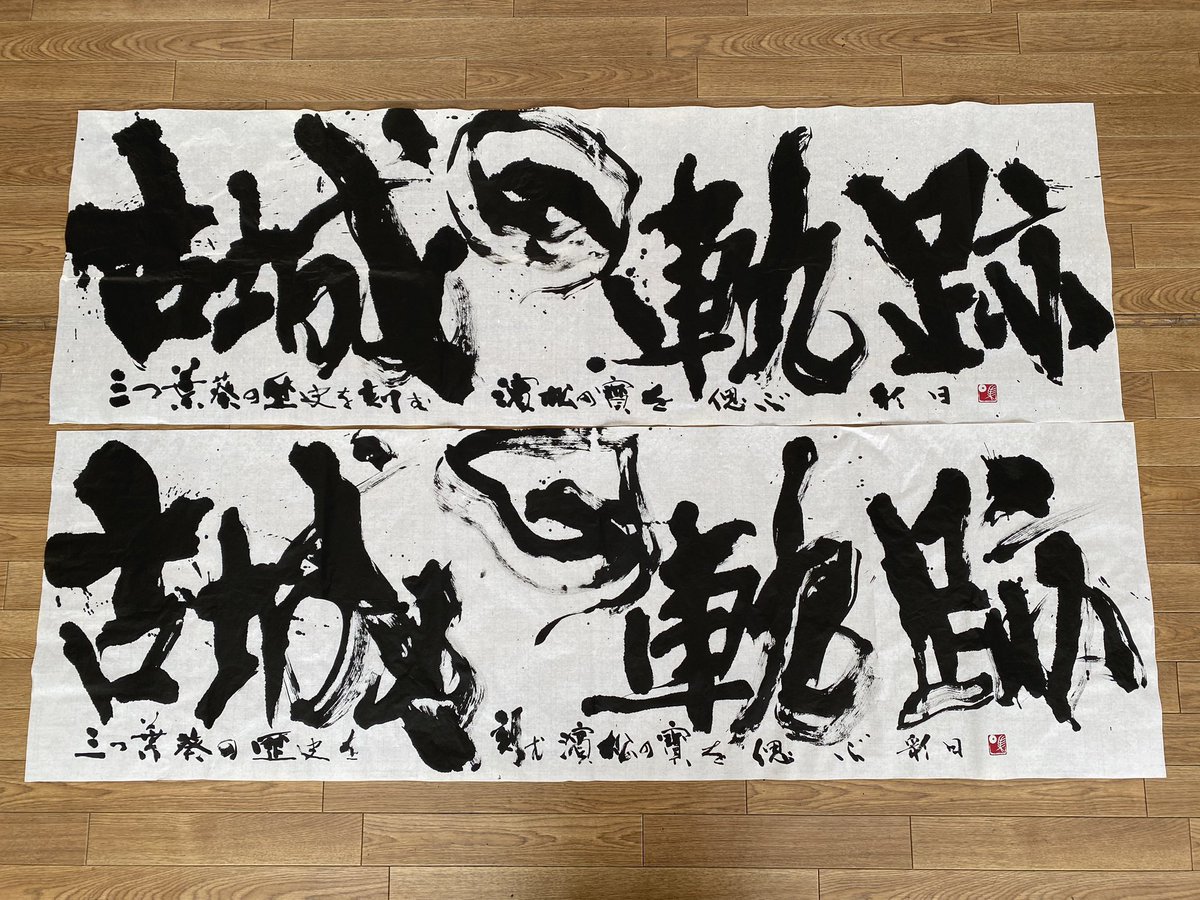 古城の軌跡
三つ葉葵の歴史を刻む 濱松の寶を偲ぶ
古城の軌跡
三つ葉葵の歴史を 刻む濱松の寶を偲ぶ